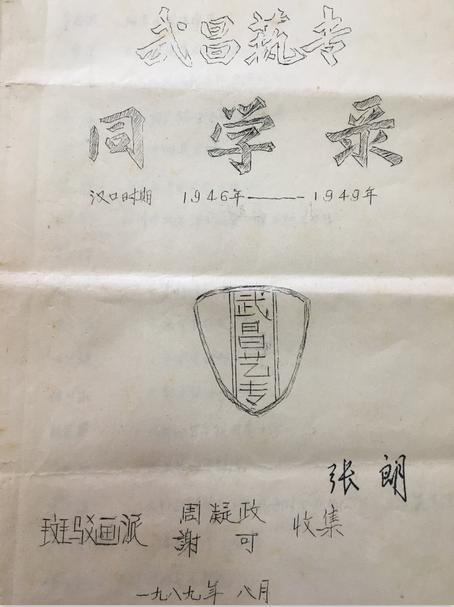 武昌艺专
同学录
汉口时期 1946年——1949年
武昌艺专
张朗
斑驳画派 周凝政 收集
謝可
一九八九年 八月